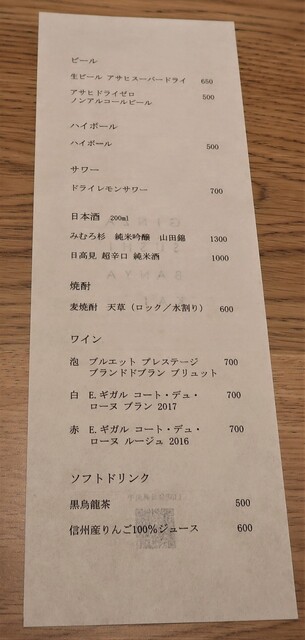 ビール
生ビール アサヒスーパードライ 650
アサヒドライゼロ
ノンアルコールビール 500
ハイボール
ハイボール 500
サワー
ドライレモンサワー 700
日本酒 200ml
みむろ杉 純米吟醸 山田錦 1300
日高見 超辛口 純米酒 1000
焼酎
麦焼酎 天草（ロック／水割り） 600
ワイン
泡 ブルエット プレステージ 700
ブランドドブラン ブリュット
白 E.ギガル コート・デュ・ 700
ローヌ ブラン 2017
赤 E.ギガル コート・デュ・ 700
ローヌ ルージュ 2016
ソフトドリンク
黒烏龍茶 500
信州産りんご100%ジュース 600